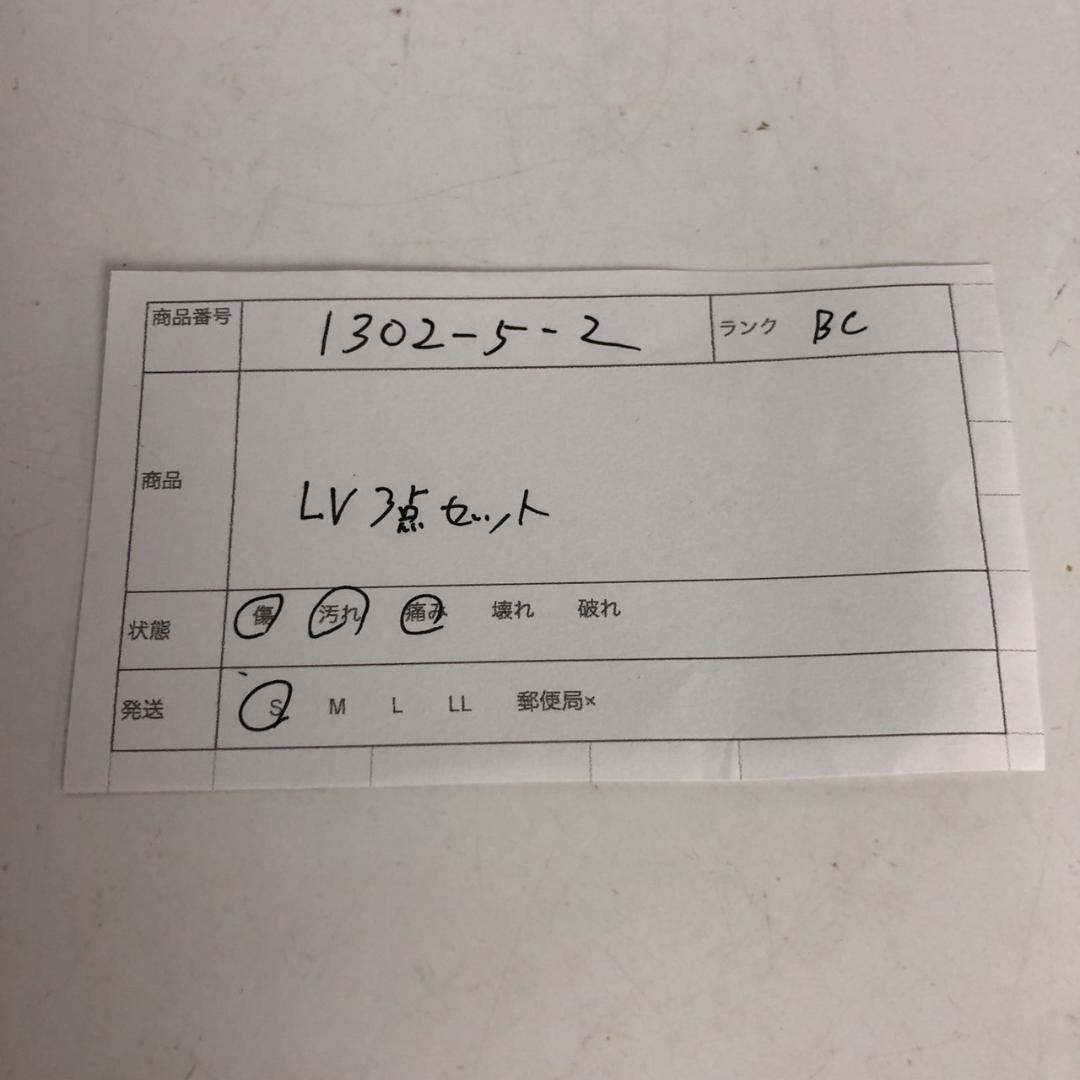 商品番号 1302-5-2 ランク BC
商品 LV 3点セット
状態 傷 汚れ 痛み 壊れ 破れ
発送 S M L LL 郵便局×